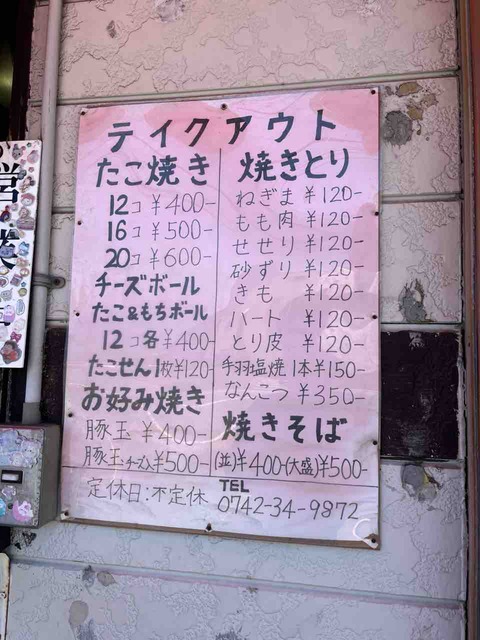 テイクアウト
たこ焼き
12コ ¥400-
16コ ¥500-
20コ ¥600-
チーズボール
たこ&もちボール
12コ各¥400-
たこせん1枚¥120-
お好み焼き
豚玉 ¥400-
豚玉チーズ入¥500-
焼きとり
ねぎま ¥120-
もも肉 ¥120-
せせり ¥120-
砂ずり ¥120-
きも ¥120-
ハート ¥120-
とり皮 ¥120-
手羽塩焼1本¥150-
なんこつ ¥350-
焼きそば
(並)¥400-(大盛)¥500-
定休日:不定休
TEL
0742-34-9872
営業